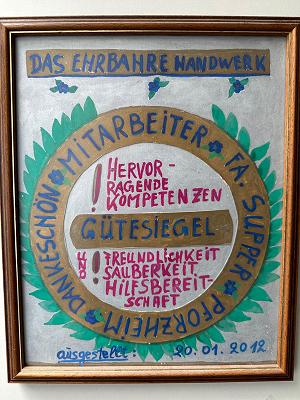 DAS EHRBAHRE HANDWERK
DANKESCHÖN MITARBEITER FA. SUPPER PFORZHEIM
! HERVOR-
RAGENDE
KOMPETENZEN
GÜTESIEGEL
! FREUNDLICHKEIT
SAUBERKEIT
HILFSBEREIT-
SCHAFT
ausgestellt: 20.01.2012